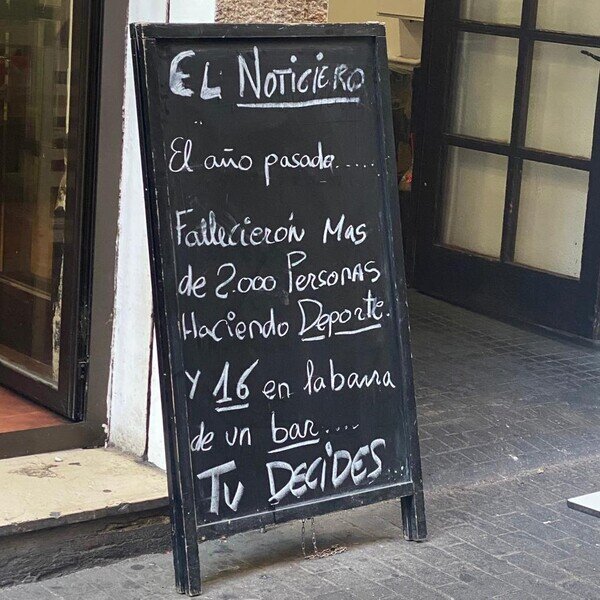 EL NOTICIERO
El año pasado.....
Fallecierón Mas
de 2.000 Personas
Haciendo Deporte.
Y 16 en la barra
de un bar....
TU DECIDES...